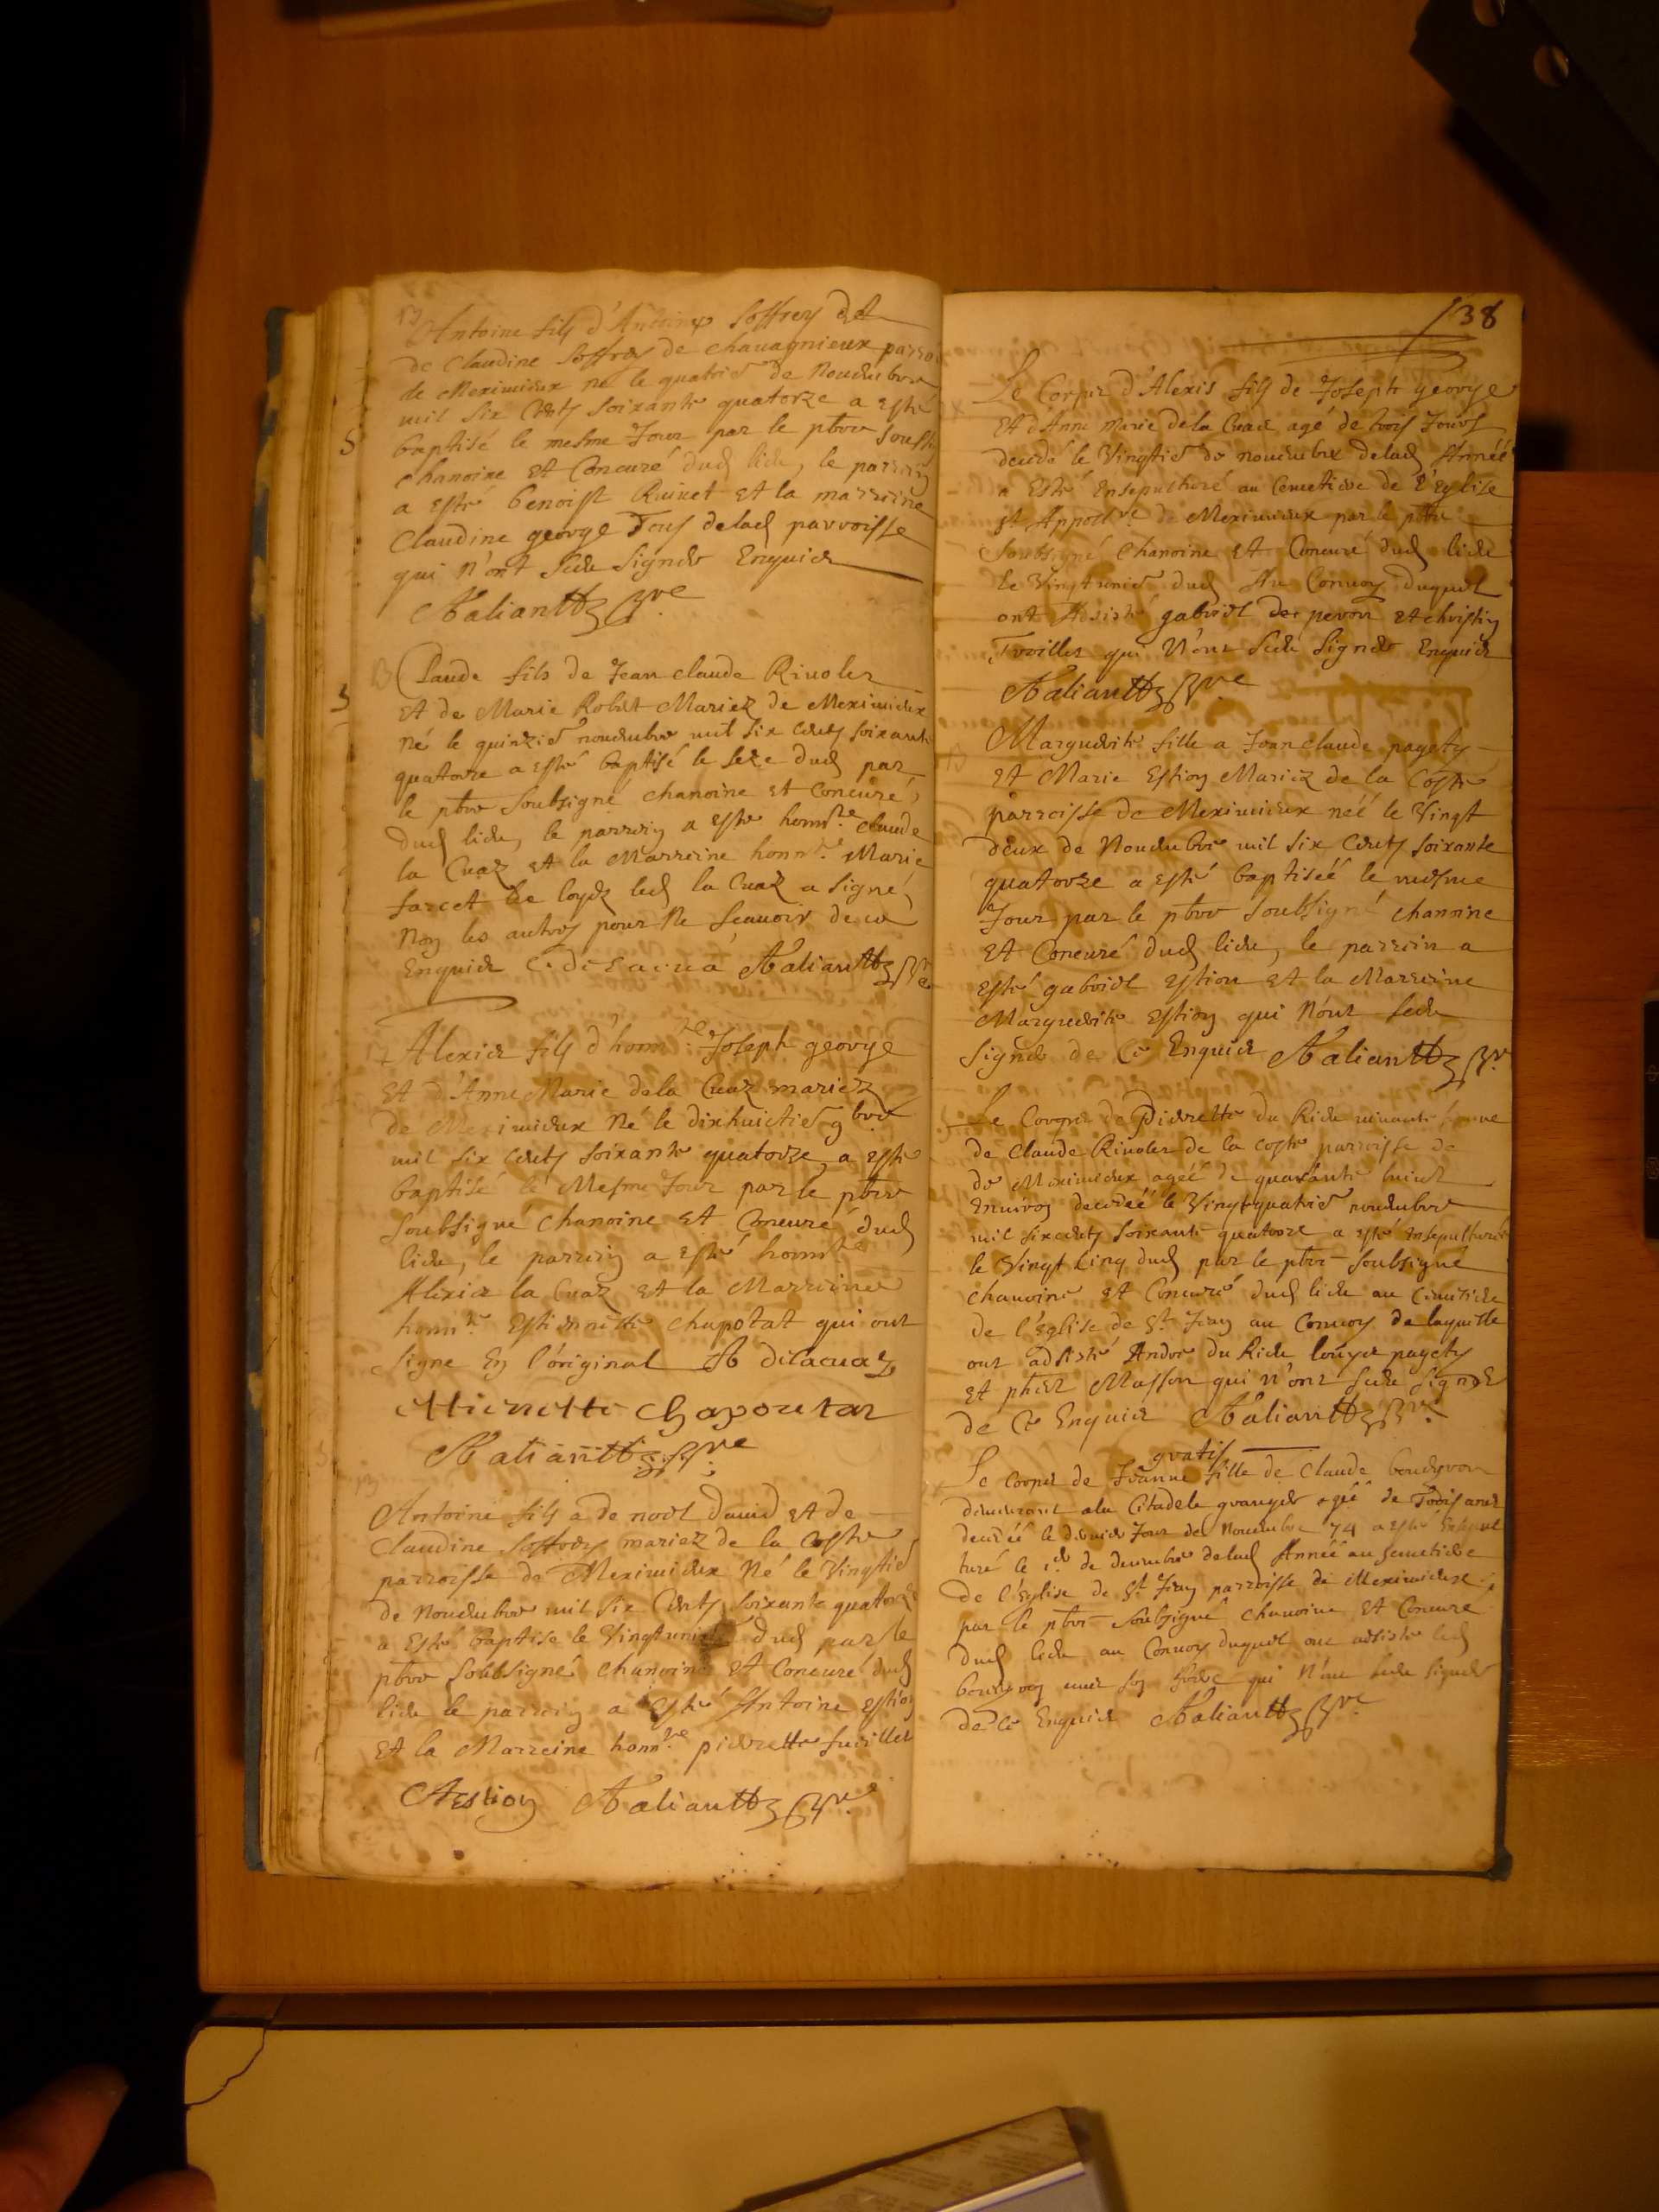 Antoine fils d'Antoine Joffrey et
de Claudine Joffrey de chauagnieux parro
de Meximieux né le quatrie de Nouembre
mil six Cents soixante quatorze a esté
baptisé le mesme Jour par le pbre soubs
chanoine et Concuré dud lieu, le parrain
a esté benoist Riuiet et la marraine
Claudine george Tous delad parroisse
qui n'ont sceu signer Enquis
Aalianttz pre
Claude fils de Jean claude Riuoler
et de Marie Robert Mariez de Meximieux
Né le quinzie nouembre mil six Cents soixante
quatorze a esté baptisé le seze dud par
le pbre soubsigné chanoine et Concuré
dud lieu, le parrain a esté honnre claude
la Cuaz et la Marreine honnre Marie
farcet led la Cuaz a signé,
Non les autres pour ne sçauoir de ce
Enquis C. delacua Aalianttz pre
Alexis fils d'honnre Joseph george
Et d'Anne Marie dela Cuaz mariez
de Meximieux Né le dixhuictie 9bre
mil six Cents soixante quatorze, a esté
baptisé le Mesme Jour par le pbre
soubsigné chanoine et Concuré dud
lieu, le parrain a esté honnre
Alexis la Cuaz et la Marreine
honnre Estiennette chapotat qui ont
signe En l'original A delacuaz
Ettienette Chapoutat
Aalianttz pre
Antoine fils a de noel dauid et de
Claudine Joffrey mariez de la Coste
parroisse de Meximieux Né le Vingtie
de Nouembre mil six Cents soixante quatorze
a Esté baptise le Vingtunie dud par le
pbre soubsigné chanoine et Concuré dud
lieu le parrain a Esté Antoine estion
Et la Marreine honnre pierrette fueillet
A estion Aalianttz pre
138
Le Corps d'Alexis fils de Joseph george
Et d'Anne Marie dela Cuaz agé de trois Jours
decedé le Vingtie de nouembre delad Année
a Esté Ensepulturé au Cemetiere de l'Eglise
st Appostre de Meximieux par le pbre
Soubsigné Chanoine et Concuré dud lieu
le Vingtunie dud Au Conuoy duquel
ont Assisté gabriel der peron et christin
Troillet qui N'ont sceu signer Enquis
Aalianttz pre
Marguerite fille a Jean claude pagety
Et Marie Estion Mariez de la Coste
parroisse de Meximieux neé le Vingt
deux de Nouembre mil six Cents soixante
quatorze a esté baptiseé le mesme
Jour par le pbre soubsigné chanoine
et Concuré dud lieu, le parrein a
esté gabriel estion et la Marreine
Marguerite Estion qui N'ont sceu
signer de Ce Enquis Aalianttz pre
Le Corps de Pierrette du Rieu uiuante femme
de Claude Riuoler de la coste parroisse de
de Meximieux ageé de quarante huict
Enuiron decedeé le Vingtquatrie nouembre
mil sixcents soixante quatorze a esté Ensepulturée
le Vingt Cinq dud par le pbre soubsigné
chanoine et Concuré dud lieu au Cimetiere
de l'Eglise de St Jean au Conuoy de laquelle
ont adsisté Andre du Rieu louys pagety
et Masson qui n'ont sceu signer
de Ce Enquis Aalianttz pre
gratis
Le Corps de Jeanne fille de Claude
demeurant ala Citadele granger ageé de Trois ans
decedeé le dernier Jour de Nouembre 74 a esté Ensepul
turé le 1er de decembre delad Année au semetiere
de l'Eglise de St Jean parroisse de Meximieux
par le pbre soubsigné chanoine et Concuré
dud lieu au Conuoy duquel ont adsisté led
auec son frere qui N'ont sceu signer
de Ce Enquis Aalianttz pre